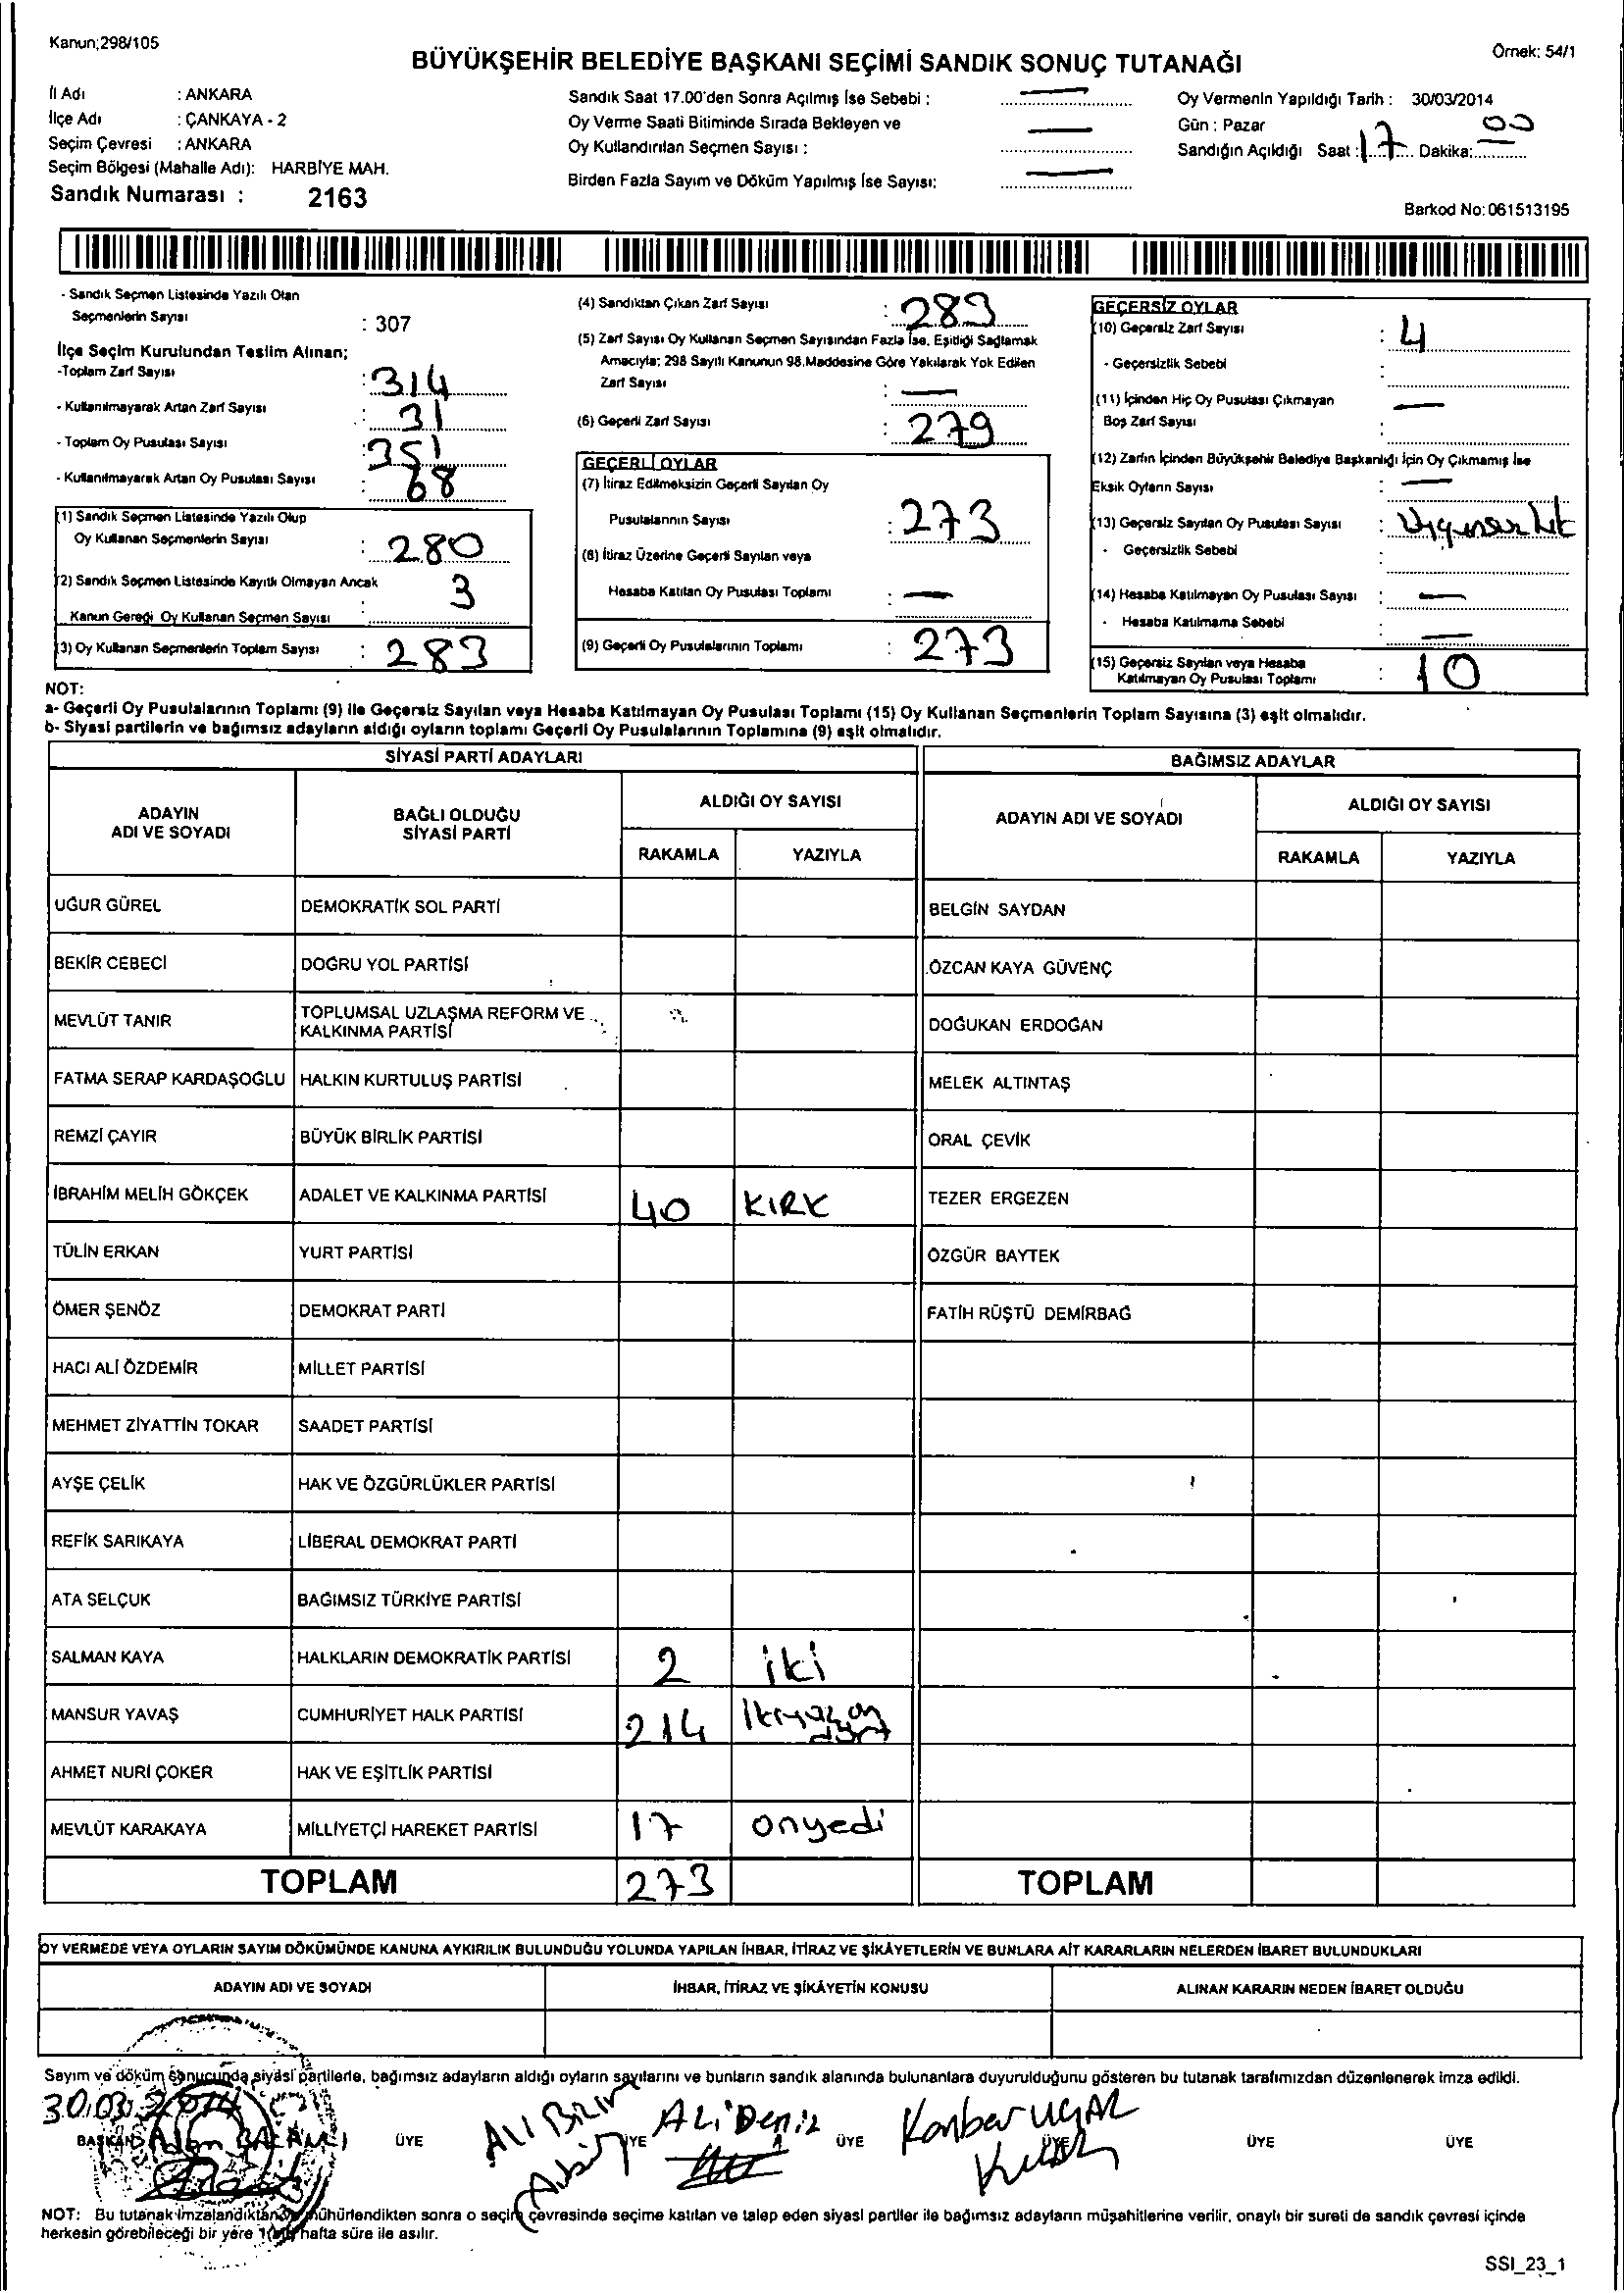 Kanun;298/105
Örnek: 54/1
BÜYÜKŞEHİR BELEDİYE BAŞKANI SEÇİMİ SANDIK SONUÇ TUTANAĞI
İl Adı : ANKARA
İlçe Adı : ÇANKAYA - 2
Seçim Çevresi : ANKARA
Seçim Bölgesi (Mahalle Adı): HARBİYE MAH.
Sandık Numarası : 2163
Sandık Saat 17.00'den Sonra Açılmış İse Sebebi : —
Oy Verme Saati Bitiminde Sırada Bekleyen ve
Oy Kullandırılan Seçmen Sayısı : —
Birden Fazla Sayım ve Döküm Yapılmış İse Sayısı: —
Oy Vermenin Yapıldığı Tarih : 30/03/2014
Gün : Pazar
Sandığın Açıldığı Saat : 17 Dakika: 00
Barkod No: 061513195
- Sandık Seçmen Listesinde Yazılı Olan
Seçmenlerin Sayısı : 307
İlçe Seçim Kurulundan Teslim Alınan;
-Toplam Zarf Sayısı : 314
- Kullanılmayarak Artan Zarf Sayısı : 31
- Toplam Oy Pusulası Sayısı : 351
- Kullanılmayarak Artan Oy Pusulası Sayısı : 68
(1) Sandık Seçmen Listesinde Yazılı Olup
Oy Kullanan Seçmenlerin Sayısı : 280
(2) Sandık Seçmen Listesinde Kayıtlı Olmayan Ancak
Kanun Gereği Oy Kullanan Seçmen Sayısı : 3
(3) Oy Kullanan Seçmenlerin Toplam Sayısı : 283
(4) Sandıktan Çıkan Zarf Sayısı : 283
(5) Zarf Sayısı Oy Kullanan Seçmen Sayısından Fazla İse, Eşitliği Sağlamak
Amacıyla; 298 Sayılı Kanunun 98.Maddesine Göre Yakılarak Yok Edilen
Zarf Sayısı : —
(6) Geçerli Zarf Sayısı : 279
GEÇERLİ OYLAR
(7) İtiraz Edilmeksizin Geçerli Sayılan Oy
Pusulalarının Sayısı : 273
(8) İtiraz Üzerine Geçerli Sayılan veya
Hesaba Katılan Oy Pusulası Toplamı : —
(9) Geçerli Oy Pusulalarının Toplamı : 273
GEÇERSİZ OYLAR
(10) Geçersiz Zarf Sayısı : 4
- Geçersizlik Sebebi :
(11) İçinden Hiç Oy Pusulası Çıkmayan —
Boş Zarf Sayısı :
(12) Zarfın İçinden Büyükşehir Belediye Başkanlığı İçin Oy Çıkmamış İse
Eksik Oyların Sayısı : —
(13) Geçersiz Sayılan Oy Pusulası Sayısı :
- Geçersizlik Sebebi :
(14) Hesaba Katılmayan Oy Pusulası Sayısı : —
- Hesaba Katılmama Sebebi : —
(15) Geçersiz Sayılan veya Hesaba
Katılmayan Oy Pusulası Toplamı : 10
NOT:
a- Geçerli Oy Pusulalarının Toplamı (9) ile Geçersiz Sayılan veya Hesaba Katılmayan Oy Pusulası Toplamı (15) Oy Kullanan Seçmenlerin Toplam Sayısına (3) eşit olmalıdır.
b- Siyasi partilerin ve bağımsız adayların aldığı oyların toplamı Geçerli Oy Pusulalarının Toplamına (9) eşit olmalıdır.
SİYASİ PARTİ ADAYLARI
BAĞIMSIZ ADAYLAR
ADAYIN
ADI VE SOYADI
BAĞLI OLDUĞU
SİYASİ PARTİ
ALDIĞI OY SAYISI
RAKAMLA YAZIYLA
ADAYIN ADI VE SOYADI
ALDIĞI OY SAYISI
RAKAMLA YAZIYLA
UĞUR GÜREL DEMOKRATİK SOL PARTİ BELGİN SAYDAN
BEKİR CEBECİ DOĞRU YOL PARTİSİ ÖZCAN KAYA GÜVENÇ
MEVLÜT TANIR TOPLUMSAL UZLAŞMA REFORM VE
KALKINMA PARTİSİ DOĞUKAN ERDOĞAN
FATMA SERAP KARDAŞOĞLU HALKIN KURTULUŞ PARTİSİ MELEK ALTINTAŞ
REMZİ ÇAYIR BÜYÜK BİRLİK PARTİSİ ORAL ÇEVİK
İBRAHİM MELİH GÖKÇEK ADALET VE KALKINMA PARTİSİ 40 KIRK TEZER ERGEZEN
TÜLİN ERKAN YURT PARTİSİ ÖZGÜR BAYTEK
ÖMER ŞENÖZ DEMOKRAT PARTİ FATİH RÜŞTÜ DEMİRBAĞ
HACI ALİ ÖZDEMİR MİLLET PARTİSİ
MEHMET ZİYATTİN TOKAR SAADET PARTİSİ
AYŞE ÇELİK HAK VE ÖZGÜRLÜKLER PARTİSİ
REFİK SARIKAYA LİBERAL DEMOKRAT PARTİ
ATA SELÇUK BAĞIMSIZ TÜRKİYE PARTİSİ
SALMAN KAYA HALKLARIN DEMOKRATİK PARTİSİ 2 iki
MANSUR YAVAŞ CUMHURİYET HALK PARTİSİ 214 İkiyüzon
dört
AHMET NURİ ÇOKER HAK VE EŞİTLİK PARTİSİ
MEVLÜT KARAKAYA MİLLİYETÇİ HAREKET PARTİSİ 17 onyedi
TOPLAM 273 TOPLAM
OY VERMEDE VEYA OYLARIN SAYIM DÖKÜMÜNDE KANUNA AYKIRILIK BULUNDUĞU YOLUNDA YAPILAN İHBAR, İTİRAZ VE ŞİKÂYETLERİN VE BUNLARA AİT KARARLARIN NELERDEN İBARET BULUNDUKLARI
ADAYIN ADI VE SOYADI İHBAR, İTİRAZ VE ŞİKÂYETİN KONUSU ALINAN KARARIN NEDEN İBARET OLDUĞU
Sayım ve döküm sonucunda siyasi partilerle, bağımsız adayların aldığı oyların sayılarını ve bunların sandık alanında bulunanlara duyurulduğunu gösteren bu tutanak tarafımızdan düzenlenerek imza edildi.
30.03.2014
BAŞKAN ÜYE ÜYE ÜYE ÜYE ÜYE ÜYE
ALİ Deniz
Kanber UÇAR
NOT: Bu tutanak imzalandıktan ve mühürlendikten sonra o seçim çevresinde seçime katılan ve talep eden siyasi partiler ile bağımsız adayların müşahitlerine verilir, onaylı bir sureti de sandık çevresi içinde
herkesin görebileceği bir yere hafta süre ile asılır.
SSI_23_1